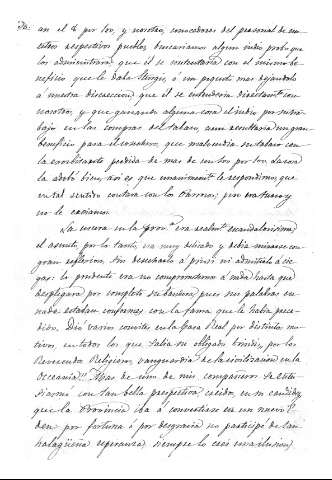 an el 8 por 100, y nosotros, conocedores del personal de nu-
estros respectivos pueblos buscariamos algun indio probo que
los administrara, que él se contentaria con el mismo be-
neficio que le daba Stengis, ó un poquito mas dejandolo
á nuestra discrecion, que él se entenderia directamte con
nosotros, y que ganando alguna cosa el indio por su tra-
bajo en las compras del tabaco, aun resultaria un gran
beneficio para el cosechero, que malvendia su tabaco con
la exorbitante perdida de mas de un 100 por 100. La cosa
la adobó bien, asi es que unanimemte le respondimos, que
en tal sentido contara con los Párrocos; pero era hueso y
no le
La usura en la provª era realmte escandalosisima,
el asunto, por lo tanto, era muy delicado y debia mirarse con
gran reflexion. Sin desecharlo á priori ni admitirlo á cie-
gas: lo prudente era no comprometernos á nada hasta que
desplegara por completo su bandera, pues sus palabras en
nada estaban conformes con la fama que le habia prece-
dido. Dió varios convites en la Casa Real por distintos mo-
tivos, en todos los que salia su obligado brindis, por los
Reverendos Religiosos, vanguardia de la civilizacion en la
Oceania!! Mas de uno de mis compañeros se entu-
siasmó con tan bella perspectiva, creidos, en su candidez,
que la Provincia iba á convertirse en un nuevo E-
den: por fortuna ó por desgracia no participé de tan
halagüeña esperanza, siempre lo creí una ilusion,